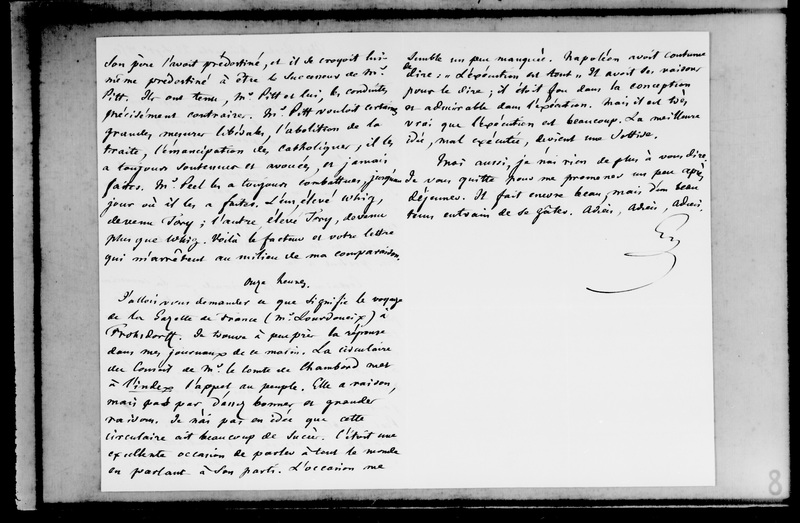 son père l'avoit prédestiné, et il se croyoit lui-
même prédestiné à être le successeur de Mr
Pitt. Ils ont tenu, Mr Pitt et lui, les conduites
précisément contraires. Mr Pitt vouloit certaines
grandes mesures libérales, l'abolition de la
traite, l'émancipation des catholiques ; il les
a toujours soutenues et avouées, et jamais
faites. Mr Peel les a toujours combattues jusqu'au
jour où il les a faites. L'un, élevé whig,
devenu Tory ; l'autre élevé Tory, devenu
plus que whig. Voilà le facteur et votre lettre
qui m'arrêtent au milieu de ma comparaison.
Onze heures.
J'allois vous demander ce que signifie le voyage
de la Gazette de France (Mr Lourdoueix) à
Frohsdorff. Je trouve à peu près la réponse
dans mes journaux de ce matin. La circulaire
du Conseil de Mr le Comte de Chambord met
à l'index l'appel au peuple. Elle a raison,
mais pas par d'assez bonnes et grandes
raisons. Je n'ai pas en idée que cette
circulaire ait beaucoup de succès. C'étoit une
excellente occasion de parler à tout le monde
en parlant à son parti. L'occasion me
semble un peu manquée. Napoléon avoit coutume
de dire : "L'exécution est tout" Il avoit ses raisons
pour le dire ; il étoit fou dans la conception
et admirable dans l'exécution. Mais il est très
vrai que l'exécution est beaucoup. La meilleure
idée, mal exécutée, devient une sottise.
Moi aussi, je n'ai rien de plus à vous dire.
Je vous quitte pour me promener un peu après
déjeuner. Il fait encore beau, mais d'un beau
tems en train de se gâter. Adieu, Adieu, Adieu.
8